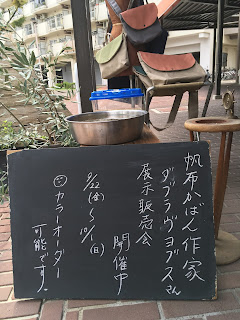 帆布かばん作家
ダブラヴヨブスさん
展示販売会
開催中
9/22(金)〜10/1(日)
カラーオーダー
可能です。